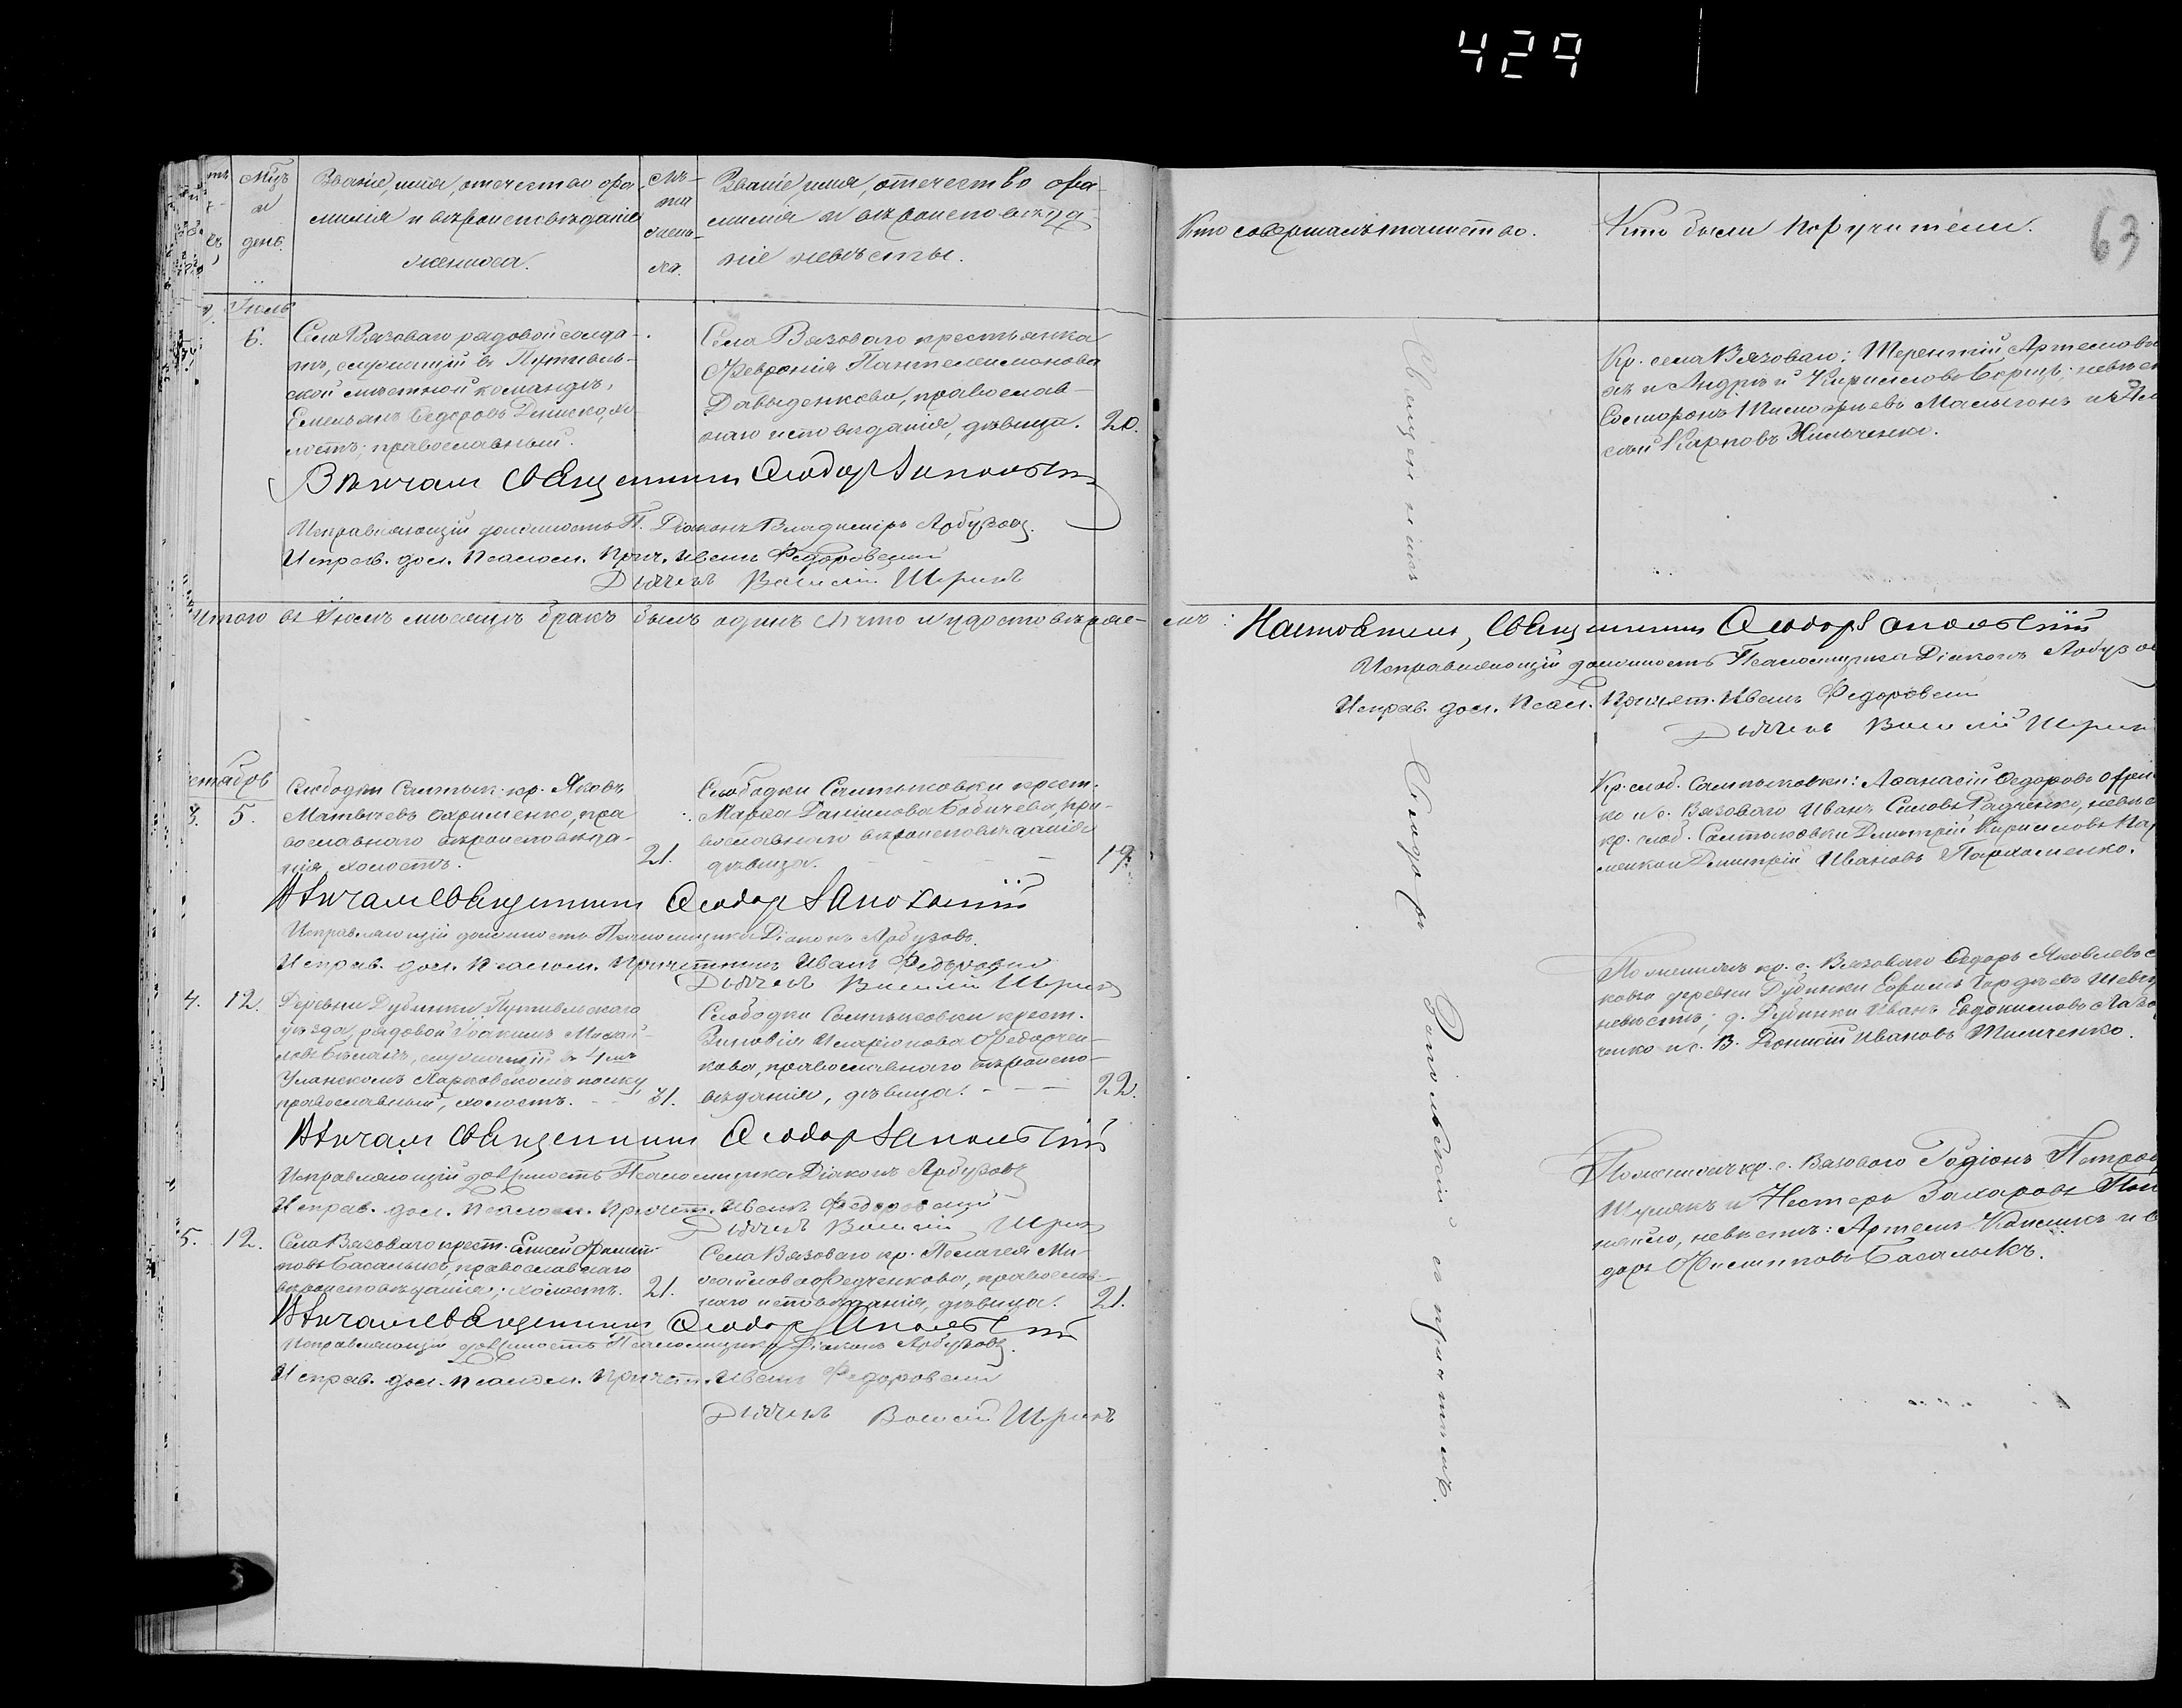 429
63
Мц̃ъ и день.
Званіе, имя, отечество фа-
милія и вѣроисповѣданіе
жениха.
Лѣ-
та
жени-
ха.
Званіе, имя, отечество фа-
милія и вѣроисповѣда-
ніе невѣсты.
Кто совершалъ таинство.
Кто были поручители.
Іюль
6.
Села Вязоваго рядовой солда-
тъ, служащій въ Путивль-
ской мѣстной командѣ,
Емельянъ Ѳедоровъ
православный.
Села Вязоваго крестьянка
Февронія Пантелеимонова
Давыденкова, православ-
наго исповѣданія, дѣвица.
20.
Кр. села Вязоваго: Терентій Артемовъ
и Андрей Кирилловъ
Карповъ Хильченко.
Вѣнчалъ Священникъ Ѳеодоръ Запольскій
Исправляющій должность П. Діаконъ Владиміръ Арбузовъ.
Исправ. дол. Псалом. Прич. Иванъ Федоровскій
Дьячекъ Василій
Итого въ Іюлѣ мѣсяцѣ бракъ былъ одинъ что и удостовѣряе-
мъ: Настоятель, Священникъ Ѳеодоръ Запольскій
Исправляющій должность Псаломщика Діаконъ
Исправ. дол. Псал. Причет. Иванъ Федоровскій
Дьячекъ Василій
3. 5.
Слободки Салтык. кр. Яковъ
Матвѣевъ Охрименко, пра
вославнаго вѣроисповѣда-
нія, холостъ.
21.
Слободки Салтыковки крест.
Марѳа Данилова Бобичева, пра-
вославнаго вѣроисповѣданія
дѣвица.
19.
Кр. слоб. Салтыковки: Аѳанасій Ѳедоровъ
ко и с. Вязоваго Иванъ Радченко,
кр. слоб. Салтыковки Дмитрій Кирилловъ
менко и Димитрій Ивановъ Пархоменко.
Вѣнчалъ Священникъ Ѳеодоръ Запольскій
Исправляющій должность Псаломщика Діаконъ Арбузовъ.
Исправ. дол. Псалом. Причетникъ Иванъ Федоровскій
Дьячекъ Василій
4. 12.
Деревни Дубинки Путивльскаго
уѣзда, рядовой Іоакимъ Михай-
ловъ служащій въ 4мъ
Уланскомъ Харьковскомъ полку
православный, холостъ.
31.
Слободки Салтыковки крест.
Зиновія Иларіонова Федорчен-
кова, православнаго вѣроиспо-
вѣданія, дѣвица.
22.
По женихѣ кр. с. Вязоваго Ѳедоръ Яковлевъ
деревни Дубинки Ефимъ Гордѣевъ
невѣстѣ; д. Дубинки Иванъ Евдокимовъ
ченко и с. В. Ивановъ Тимченко.
Вѣнчалъ Священникъ Ѳеодоръ Запольскій
Исправляющій должность Псаломщика Діаконъ Арбузовъ
Исправ. дол. Псалом. Причет. Иванъ Федоровскій
Дьячекъ Василій
5. 12.
Села Вязоваго крест. Елисей Филип-
повъ Басалыкъ, православнаго
вѣроисповѣданія, холостъ.
21.
Села Вязоваго кр. Пелагея Ми-
хайлова Федченкова, православ-
наго исповѣданія, дѣвица.
21.
По женихѣ кр. с. Вязоваго Родіонъ
и Нестеръ Захаровъ
невѣстѣ: Артемъ и
доръ Филипповъ Басалыкъ.
Вѣнчалъ Священникъ Ѳеодоръ Запольскій
Исправляющій должность Псаломщика Діаконъ Арбузовъ.
Исправ. дол. Псалом. Причет. Иванъ Федоровскій
Дьячекъ Василій
Священникъ Ѳеодоръ Запольскій съ причтомъ.